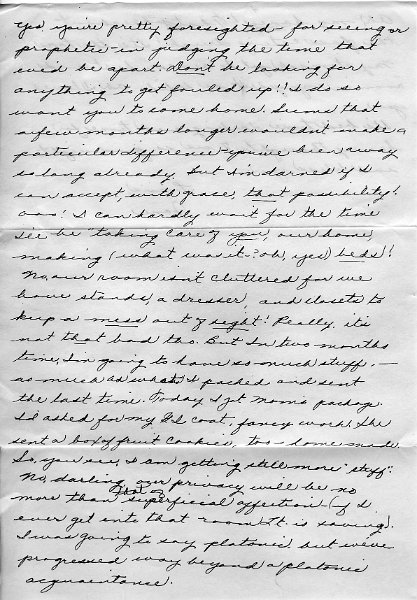 Yes, you're pretty foresighted - for seeing or
prophetic - in judging the time that
we'd be apart. Don't be looking for
anything to get fouled up!! I do so
want you to come home. Seems that
a few months longer wouldn't make a
particular difference - you've been away
so long already, but I'm darned if I
can accept, with grace, that possibility!
! I can hardly wait for the time
I'll be "taking care of you, our home,
making (what was it-? oh, yes) beds)!
No, our room isn't cluttered for we
have stands, a dresser, and closets to
keep a mess out of sight! Really, it's
not that bad tho. But in two months
time, I'm going to have so much stuff, -
as much as what I packed and sent
the last time. Today I got Mom's package.
I'd asked for my coat, fancy work. She
sent a box of fruit cookies, too - home made.
So, you see, I am getting still more "stuff".
No, darling our privacy will be no
more than that of superficial affection (if I
ever get into that room it is saving).
I was going to say platonic but we've
progressed way beyond a platonic
acquaintance.